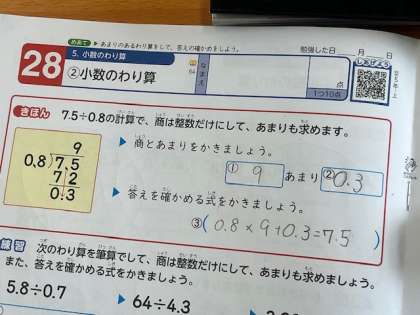 めあて ▶ あまりのあるわり算をして、答えの確かめをしよう。
勉強した日 月 日
28
5. 小数のわり算
②小数のわり算
64
なまえ
点
1つ10点
しあげよう
きほん 7.5÷0.8の計算で、商は整数だけにして、あまりも求めます。
9
0.8)7.5
7 2
0.3
▶ 商とあまりをかきましょう。
① 9 あまり ② 0.3
▶ 答えを確かめる式をかきましょう。
③ ( 0.8×9+0.3=7.5 )
練習 次のわり算を筆算でして、商は整数だけにして、あまりも求めましょう。
また、答えを確かめる式をかきましょう。
5.8÷0.7
▶ 64÷4.3